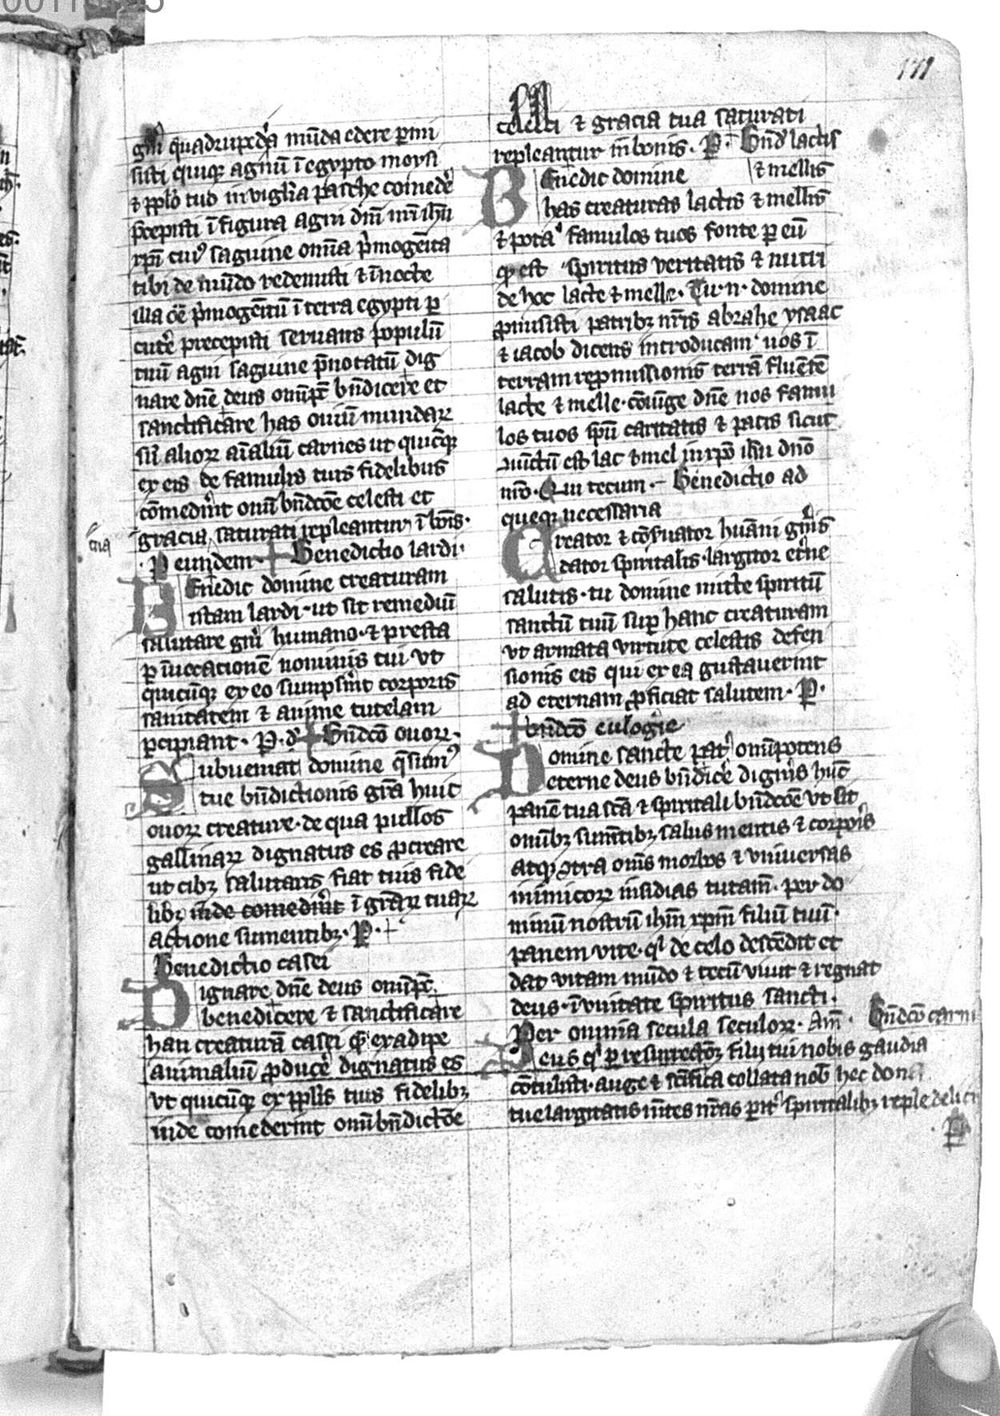 171
gn̄i quadrupeda mūda edere ꝑmi
sisti quiqꝫ agnū ī egypto moysi
⁊ pplō tuo in vigilia pasche comedē
p̄cepisti ī figura agni dn̄i nr̄i ih̄u
xp̄i cuiꝰ saguine om̄ia p̄mogeīta
tibi de mūdo redemisti ⁊ ī nocte
illa oē p̄mogenitū ī terra egypti ꝑ
cutē precepisti seruans populū
tuū agni saguine p̄notatū dig
nare dn̄e deus om̄ps bn̄dicere et
sanctificare has ouiū mundaꝝ
siū alioꝝ aīaliū carnes ut quicūqꝫ
ex eis de famulis tuis fidelibus
cōmederīt om̄i bn̄dcōe celesti et
gracia saturati repleantur ī bonis.
P eundem. Benedictio lardi
Benedic domine creaturam
istam lardi ut sit remediū
salutare gn̄i humano ⁊ presta
ꝑ īuocationē nominis tui vt
quicūqꝫ ex eo sumpserīt corporis
sanitatem ⁊ anime tutelam
ꝑcipiant. P. d. Bn̄dcō ouoꝝ.
Subueniat domine q̄sumꝰ
tue bn̄dictionis gr̄a huic
ouoꝝ creature de qua pullos
gallinaꝝ dignatus es ꝓcreare
ut cibꝫ salutaris fiat tuis fide
libꝫ inde comederīt ī gr̄aꝝ tuaꝝ
actione sumentibꝫ. P.
Benedictio casei
Dignare dn̄e deus om̄ps
benedicere ⁊ sanctificare
hanc creaturā casei quē ex adipe
animaliū ꝓducē dignatus es
vt quicūqꝫ ex pplis tuis fidelibꝫ
inde comederint om̄i bn̄dictōe
celesti ⁊ gracia tua saturati
repleantur in bonis. P. Bn̄d lactis
Benedic domine ⁊ mellis
has creaturas lactis ⁊ mellis
⁊ pota famulos tuos fonte ꝑ ēū
qd est spiritus veritatis ⁊ nutri
de hoc lacte ⁊ melle. Tu n. domine
ꝓmisisti patribꝫ nr̄is abrahe ysaac
⁊ iacob dicens introducam uos ī
terram reꝓmissionis terrā fluētē
lacte ⁊ melle. cōiūge dn̄e nos famu
los tuos sp̄ū caritatis ⁊ pacis sicut
iūctū est lac ⁊ mel in xp̄o ih̄u dn̄o
nr̄o. Qui tecum. Benedictio ad
queqꝫ necessaria
Creator ⁊ cōseruator huāni gn̄is
dator spiritalis largitor et̄ne
salutis. tu domine mitte spiritū
sanctū tuū suꝑ hanc creaturam
vt armata virtute celestis defen
sionis eis qui ex ea gustauerint
ad eternam ꝓficiat salutem. P.
bn̄dcō eulogie
Domine sancte pat̄ om̄ipotens
eterne deus bn̄dicē digneris hūc
panē tua scā ⁊ spiritali bn̄dcōe vt sit
omībꝫ sumētibꝫ salus mentis ⁊ corporis
atqꝫ ꝯtra om̄s morbos ⁊ vniuersas
inimicoꝝ insidias tutam̄. per do
minū nostrū ih̄m xp̄m filiū tuū.
panem vite. qͥ de celo descēdit et
dat vitam mūdo ⁊ tecū viuit ⁊ regnat
deus. ī vnitate spiritus sancti.
Per omnia secula seculoꝝ. Am̄. Bn̄dcō carni
Deus qͥ ꝑ resurrectōꝫ filij tui nobis gaudia
cōtulisti. auge ⁊ sc̄ifica collata nob̄ hec dona
tue largitatis mētes nr̄as ꝑit spiritalibꝫ reple delici
P